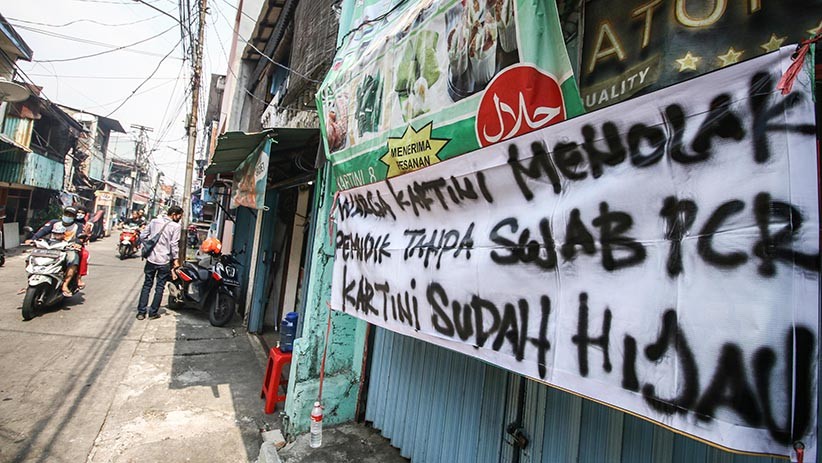 ATOR
QUALITY
حلال
MENERIMA
PESANAN
KARTINI 8
WARGA KARTINI MENOLAK
PEMUDIK TAHPA SWAB PCR
KARTINI SUDAH HIJAU